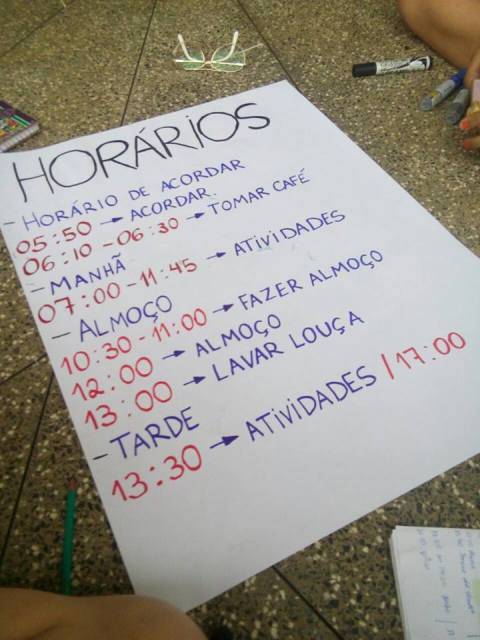 HORÁRIOS
- HORÁRIO DE ACORDAR
05:50 → ACORDAR.
06:10 - 06:30 → TOMAR CAFÉ
- MANHÃ
07:00 - 11:45 → ATIVIDADES
- ALMOÇO
10:30 - 11:00 → FAZER ALMOÇO
12:00 → ALMOÇO
13:00 → LAVAR LOUÇA
- TARDE
13:30 → ATIVIDADES / 17:00